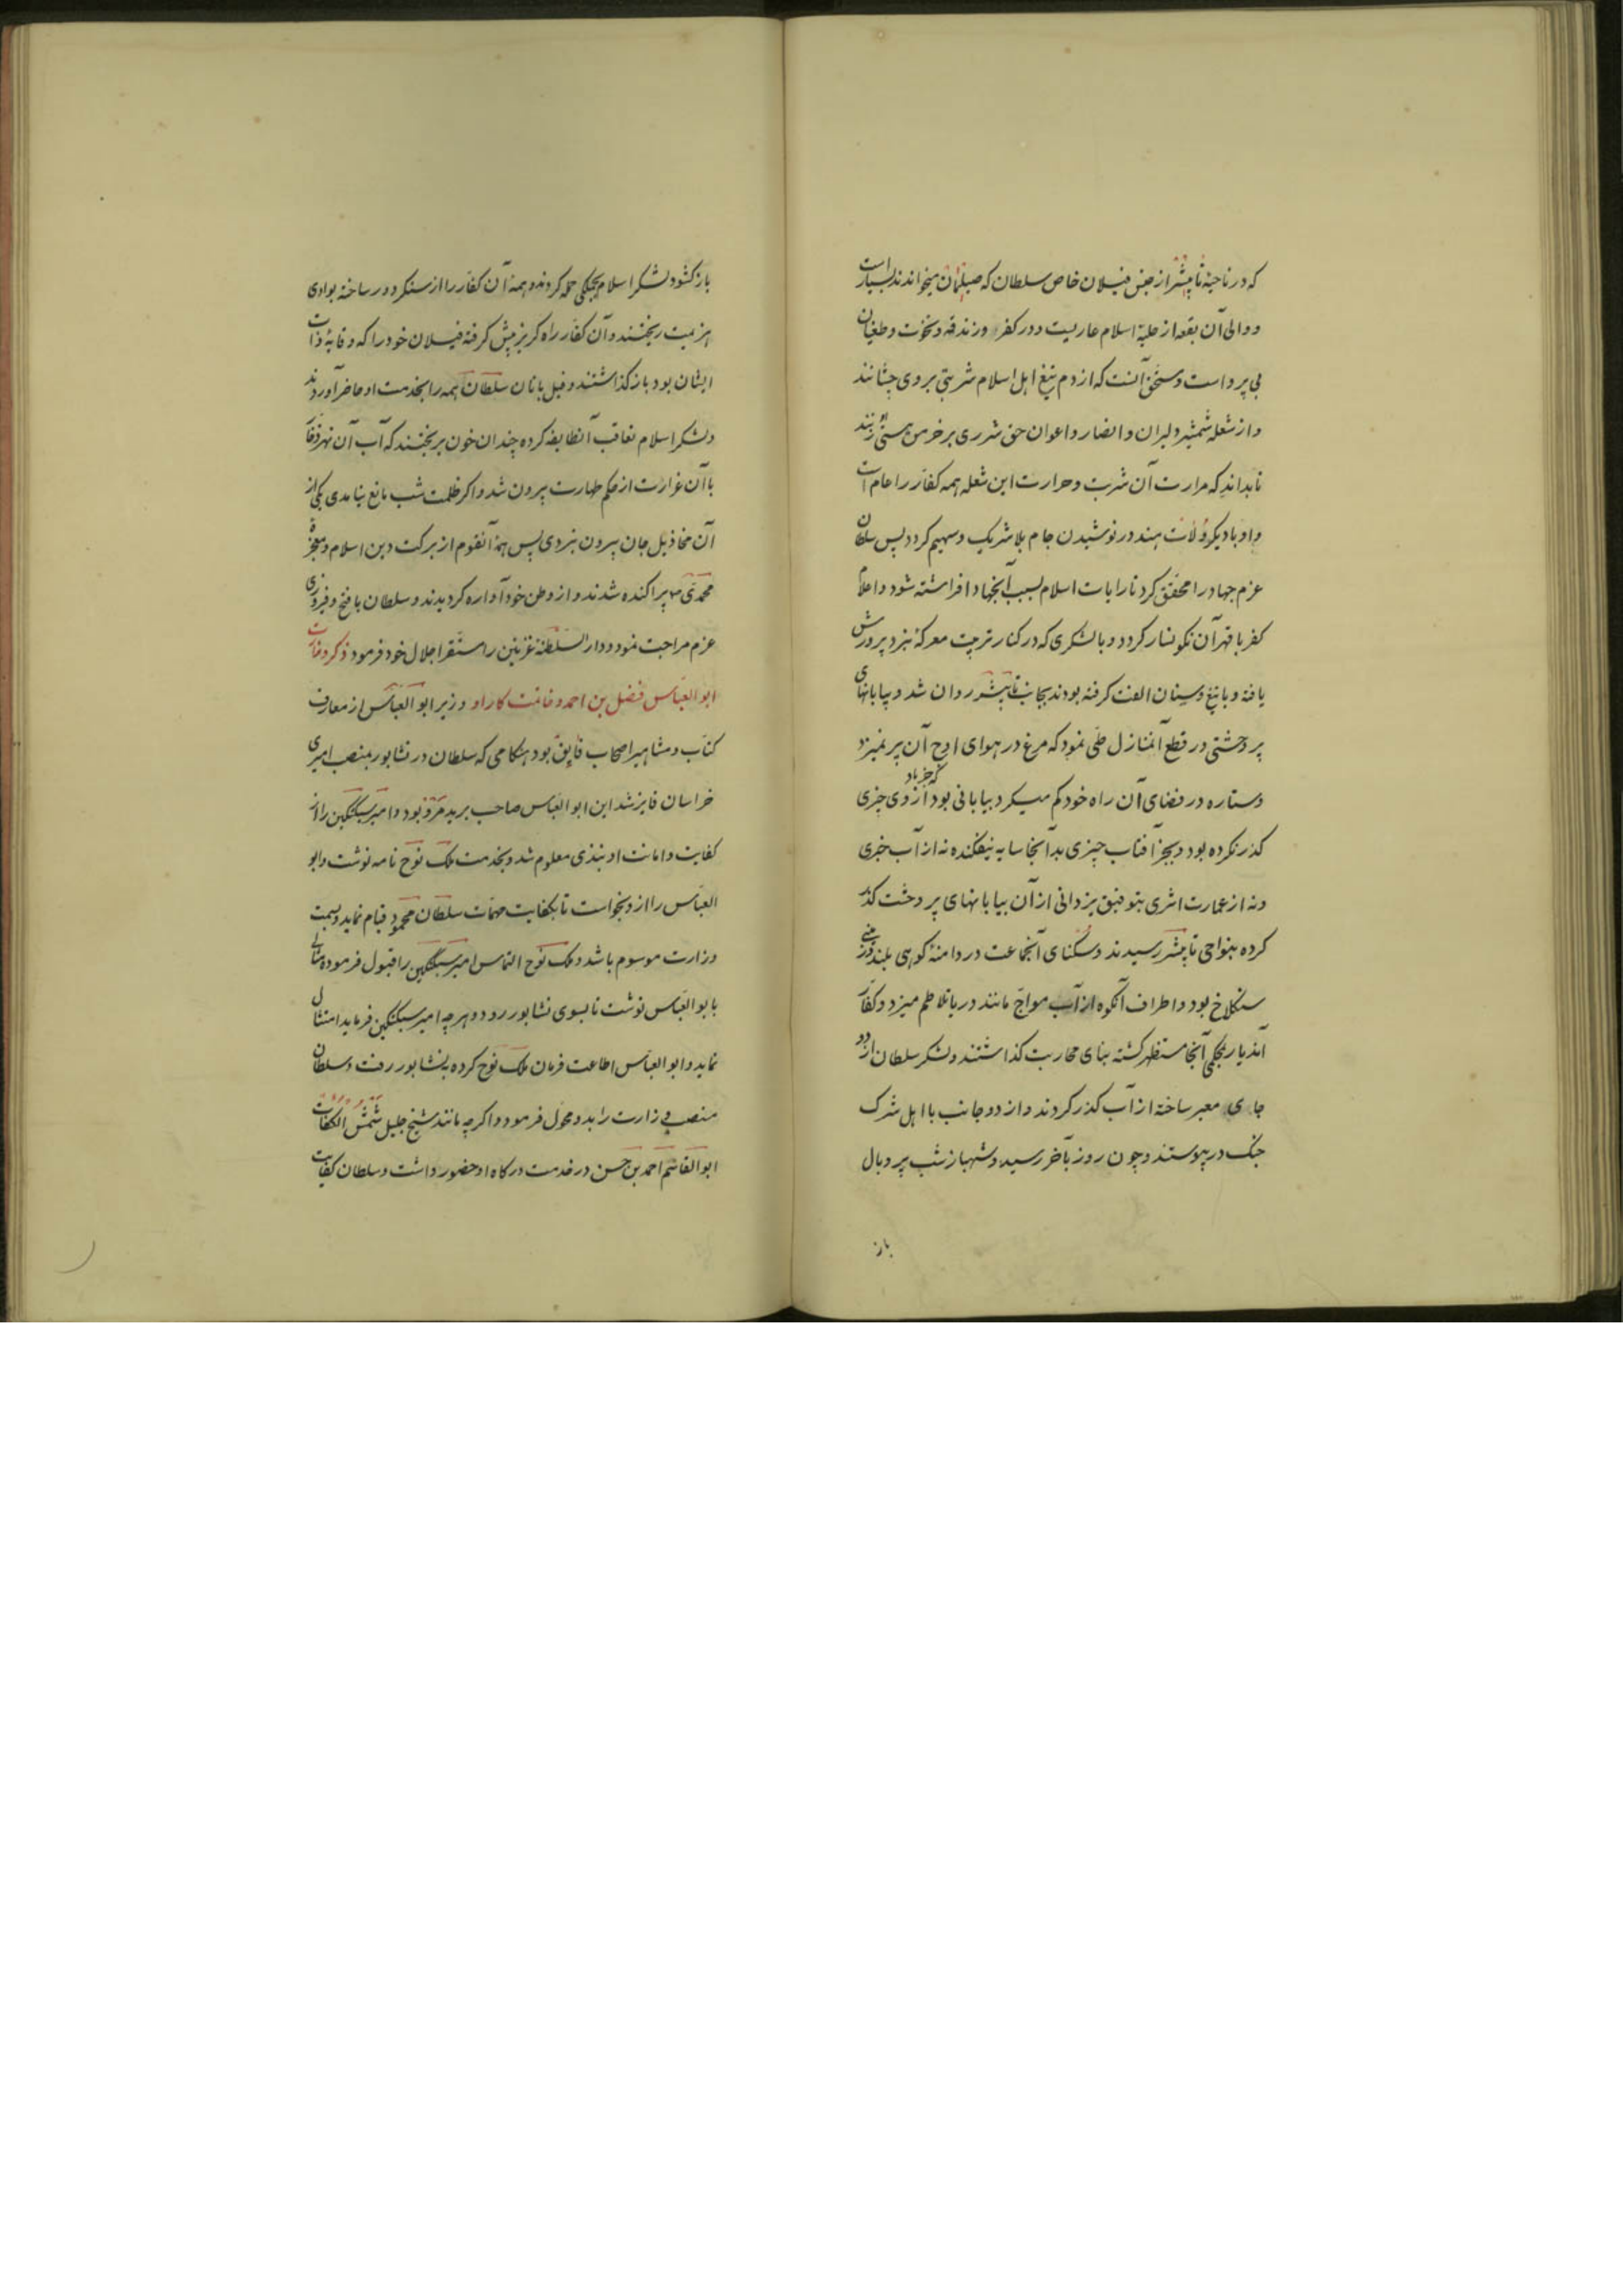 که در ناحیهٔ تانیشر از جنس فیلان خاص سلطان که صیلمان میخوانند بسیار است
و والی آن بقعه از حلیهٔ اسلام عاریست و در کفر و زندقه و نخوت و طغیان
بی پرواست و مستحق آنست که از دم تیغ اهل اسلام شربتی بر وی چشانند
و از شعله شمشیر دلیران و انصار و اعوان حق شرری بر خرمن هستی او زنند
تا بداند که مرارت آن شربت و حرارت این شعله همه کفار را عام است
و او با دیگر ولات هند در نوشیدن جام بلا شریک و سهیم گردد پس سلطان
عزم جهاد را محقق کرد تا رایات اسلام بسبب آنجهاد افراشته شود و اعلام
کفر با قهر آن نگونسار گردد و با لشکری که در کنار تربیت معرکهٔ نبرد پرورش
یافته و با تیغ و سنان الفت گرفته بودند بجانب تانیشر روان شد و بیابانهای
پر وحشتی در قطع آنمنازل طی نمود که مرغ در هوای اوج آن پر نمیزد
و ستاره در فضای آن راه خود گم میکرد بیابانی بود که جز باد از وی چیزی
گذر نکرده بود و بجز آفتاب چیزی بدآنجا سایه نیفکنده نه از آب خبری
و نه از عمارت اثری بتوفیق یزدانی از آن بیابانهای پر وحشت گذر
کرده بنواحی تانیشر رسیدند و سکنای آنجماعت در دامنهٔ کوهی بلند و زمینی
سنگلاخ بود و اطراف آنکوه از آب مواج مانند دریا تلاطم میزد و کفار
آندیار بجملگی آنجا مستظهر گشته بنای محاربت گذاشتند و لشکر سلطان از دو
جای معبر ساخته از آب گذر کردند و از دو جانب با اهل شرک
جنگ در پیوستند و چون روز بآخر رسید و شهباز شب پر و بال
باز
باز گشود لشکر اسلام بجملگی حمله کردند و همهٔ آن کفار را از سنگر دور ساخته بوادی
هزیمت ریختند و آن کفار راه گریز پیش گرفته فیلان خود را که وقایهٔ ذات
ایشان بود باز گذاشتند و فیل بانان سلطان همه را بخدمت او حاضر آوردند
و لشکر اسلام تعاقب آنطایفه کرده چندان خون بریختند که آب آن نهر زخار
با آن غزارت از حکم طهارت بیرون شد و اگر ظلمت شب مانع نیامدی یکی از
آن مخاذیل جان بیرون نبردی پس همهٔ آنقوم از برکت دین اسلام و معجزهٔ
محمدی ص پراکنده شدند و از وطن خود آواره گردیدند و سلطان با فتح و فیروزی
عزم مراجعت نمود و دار السلطنهٔ غزنین را مستقر اجلال خود فرمود ذکر وزارت
ابو العباس فضل بن احمد و خاتمت کار او وزیر ابو العباس از معارف
کتاب و مشاهیر اصحاب فایق بود هنگامی که سلطان در نشابور بمنصب امیری
خراسان فایز شد این ابو العباس صاحب برید مرو بود و امیر سبکتکین را از
کفایت و امانت او نبذی معلوم شد و بخدمت ملک نوح نامه نوشت و ابو
العباس را از و بخواست تا بکفایت مهمات سلطان محمود قیام نماید و بسمت
وزارت موسوم باشد و ملک نوح التماس امیر سبکتکین را قبول فرموده مثالی
بابو العباس نوشت تا بسوی نشابور رود و هر چه امیر سبکتکین فرماید امتثال
نماید و ابو العباس اطاعت فرمان ملک نوح کرده بنشابور رفت و سلطان
منصب وزارت را بدو محول فرمود و اگر چه مانند شیخ جلیل شمس الکفات
ابو القاسم احمد بن حسن در خدمت درگاه او حضور داشت و سلطان کفایت